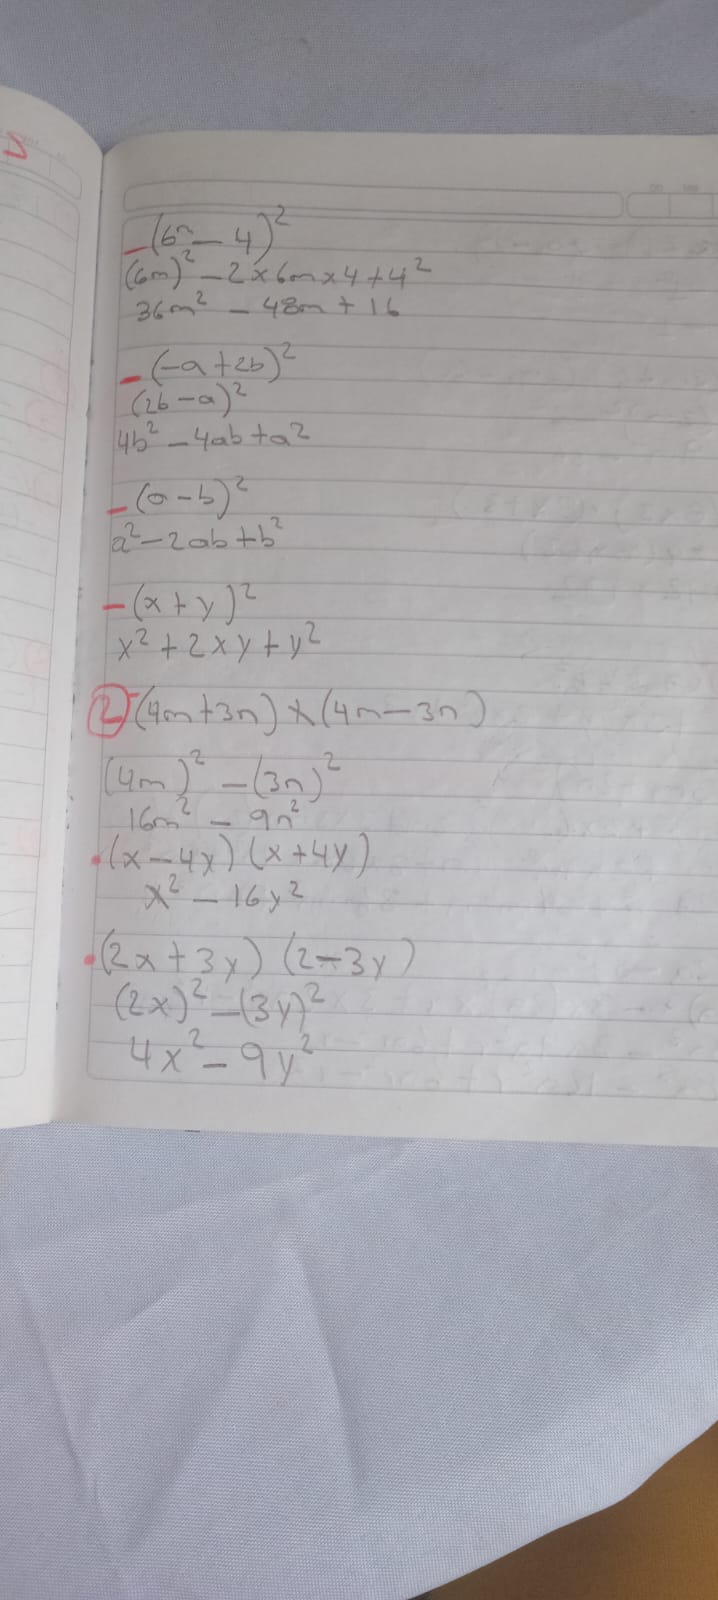 - (6m - 4)²
(6m)² - 2×6m×4+4²
36m² - 48m + 16
- (-a+2b)²
(2b-a)²
4b² - 4ab+a²
- (a-b)²
a²-2ab+b²
- (x+y)²
x²+2xy+y²
2) (4m+3n)×(4m-3n)
(4m)² - (3n)²
16m² - 9n²
• (x-4y) (x+4y)
x² - 16y²
• (2x+3y) (2-3y)
(2x)² - (3y)²
4x² - 9y²